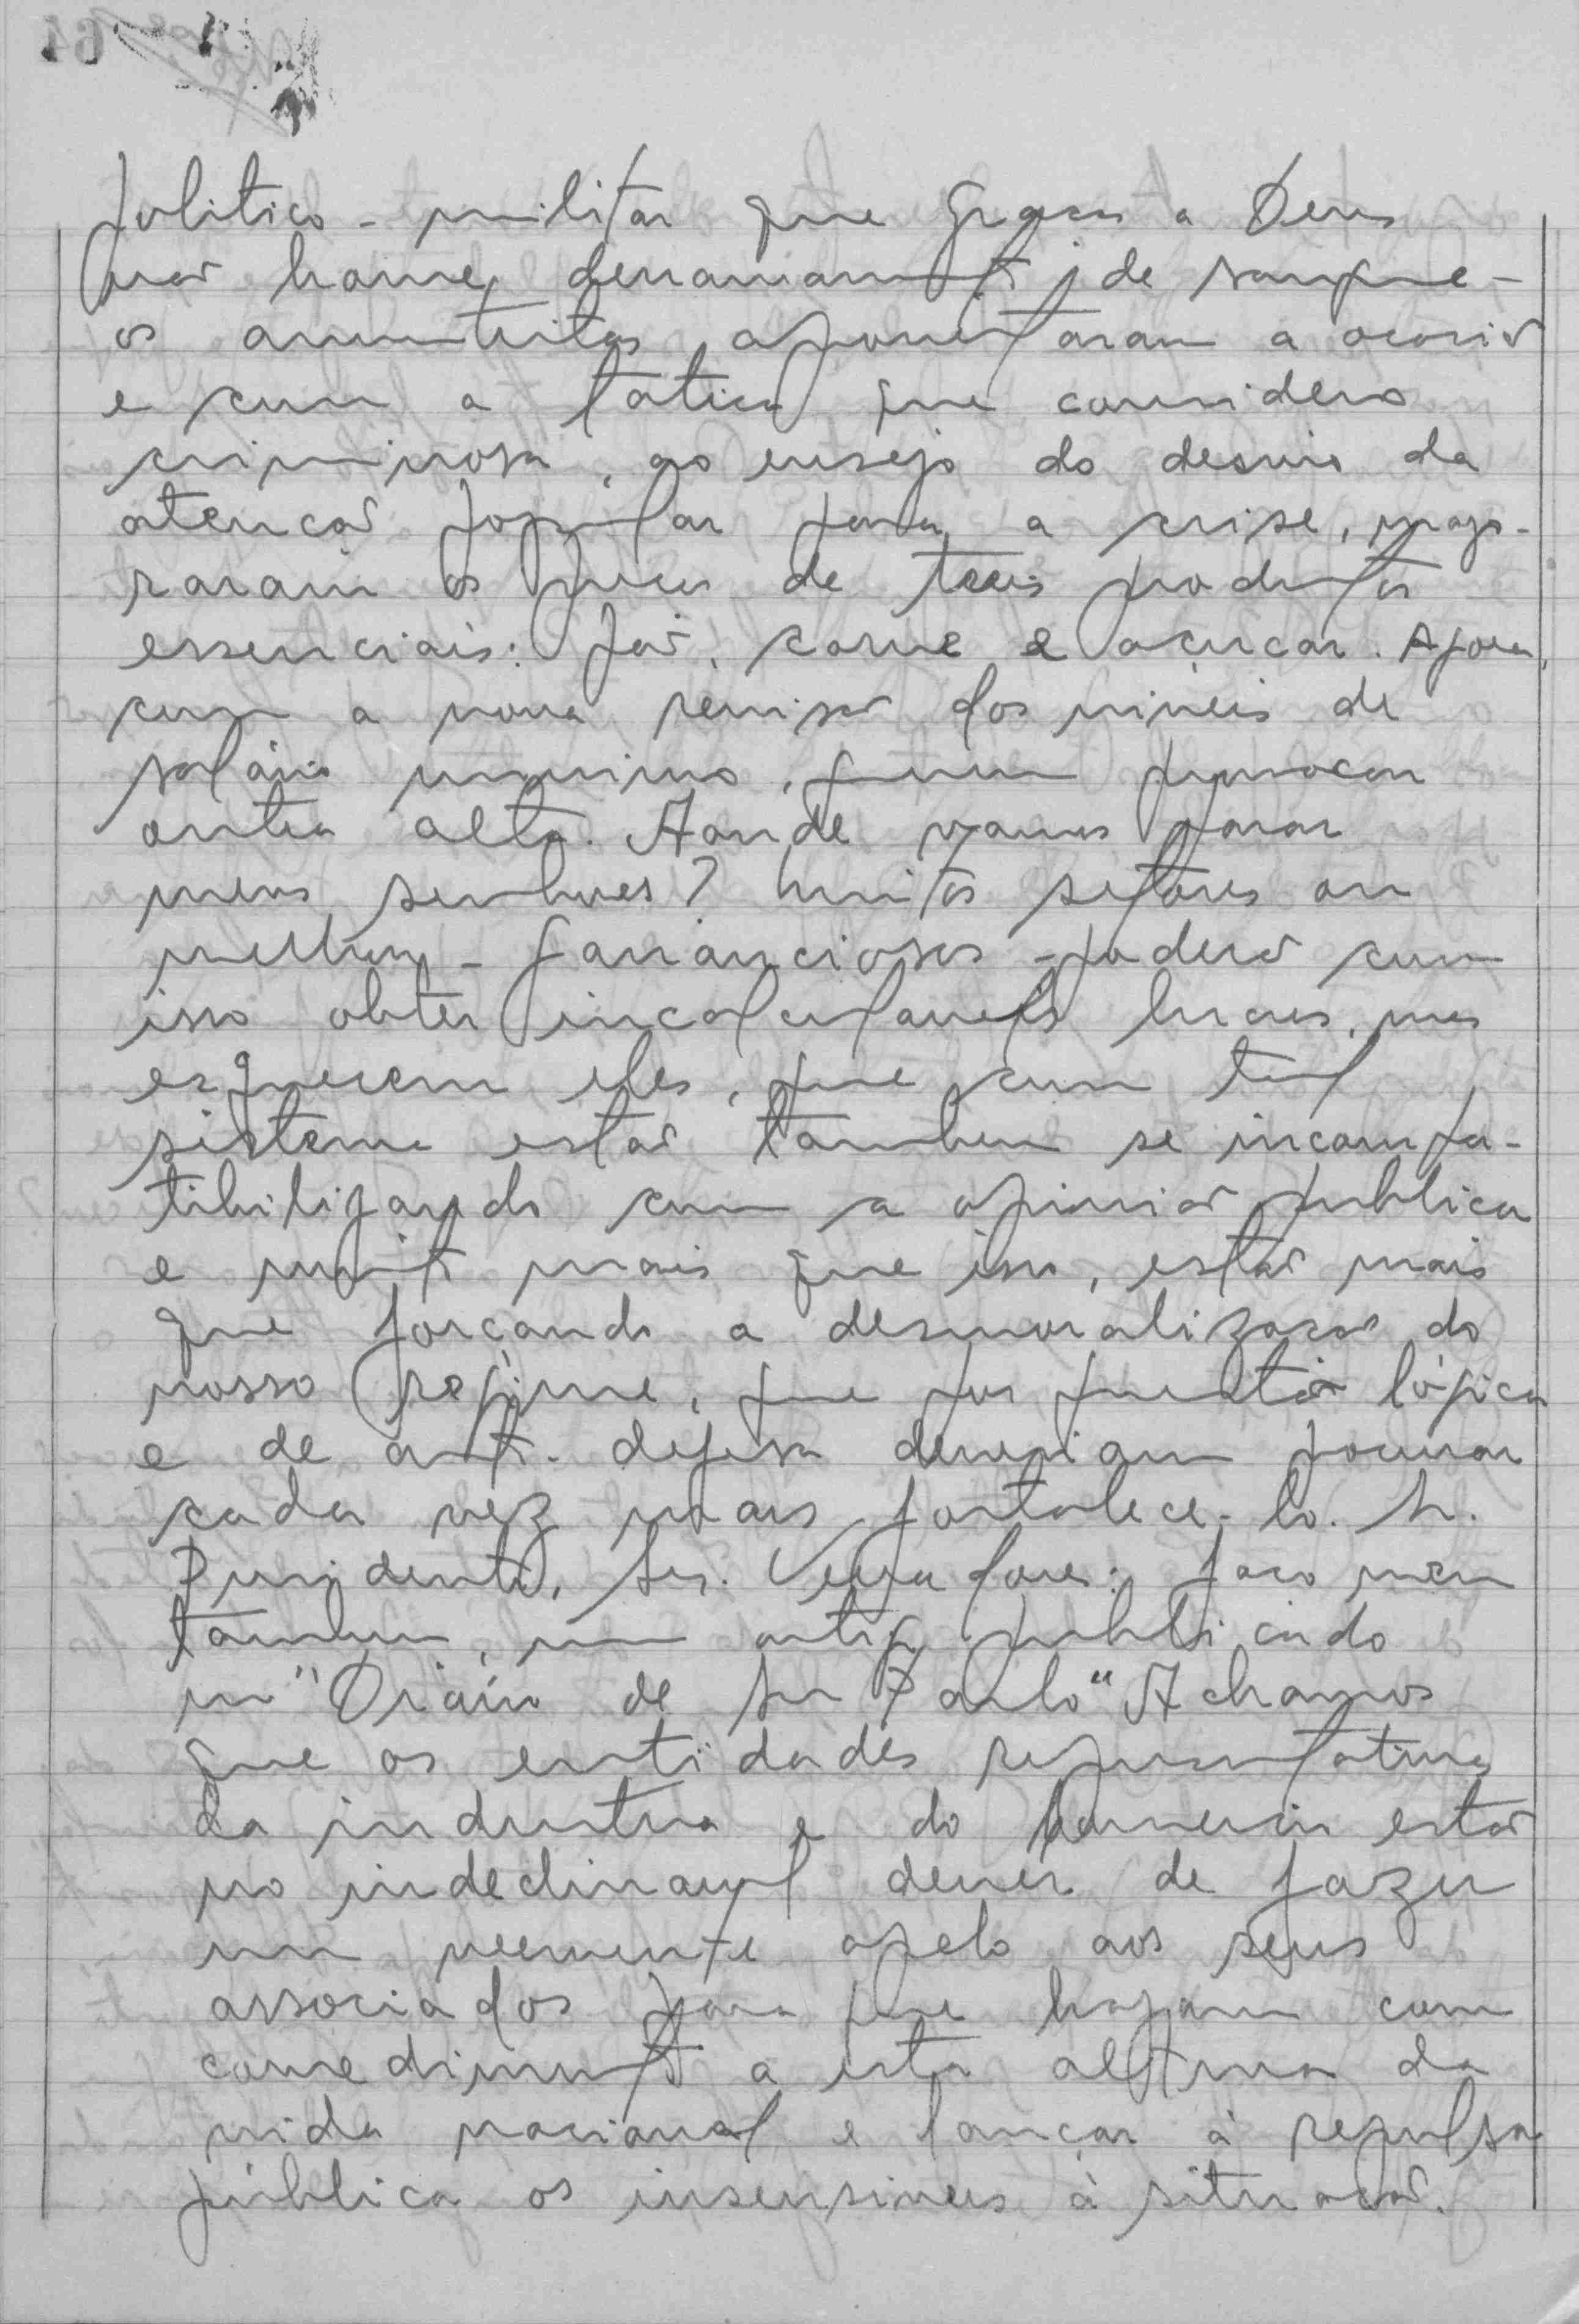 politico - militar que graças a Deus
não houve derramamento de sangue -
os altistas aproveitaram a ocasião
e com a tatica que considero
criminosa, ao ensejo do desvio da
atenção popular para a crise, majo-
raram os preços de tres produtos
essenciais: pão, carne e açucar. Agora,
com a nova revisão dos niveis de
salário minimo, querem provocar
outra alta. Aonde vamos parar
meus senhores? Muitos setores ou
melhor - gananciosos - poderão com
isso obter incalculaveis lucros, mas
esquecem eles, que com tal
sistema estão tambem se incompa-
tibilizando com a opinião publica
e muito mais que isso, estão mais
que forçando a desmoralização do
nosso regime, que por questão lógica
e de auto-defesa deveriam procurar
cada vez mais fortalece-lo. Sr.
Presidente, Srs. Vereadores: faço meu
tambem, um artigo publicado
no "Diário de São Paulo" Achamos
que as entidades representativas
da industria e do comercio estão
no indeclinavel dever de fazer
um veemente apelo aos seus
associados para que hajam com
comedimento a esta altura da
vida nacional e lançar à repulsa
pública os insensiveis à situação.